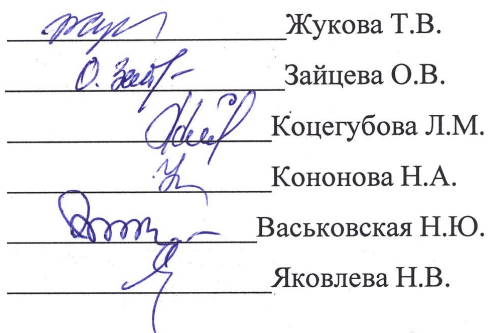 Жукова Т.В.
Зайцева О.В.
Коцегубова Л.М.
Кононова Н.А.
Васьковская Н.Ю.
Яковлева Н.В.